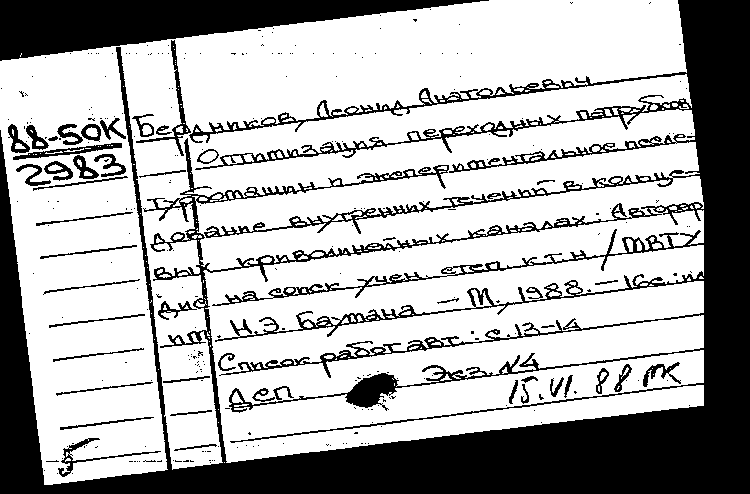 88-50К
2983
Бердников, Леонид Анатольевич
Оптимизация переходных патрубков
турбомашин и экспериментальное иссле-
дование внутренних течений в кольце-
вых криволинейных каналах: Автореф
дис на соиск учен. степ к.т.н. / МВТУ
им. Н.Э. Баумана. – М., 1988. – 16с.: ил
Список работ авт.: с. 13-14
Деп. Экз. N4
15.VI. 88 МК
5